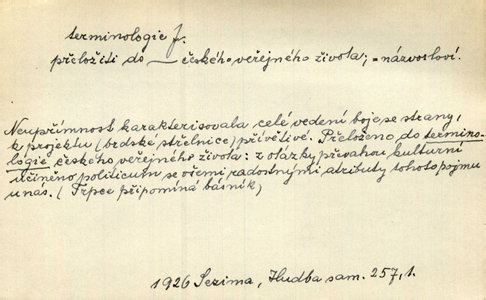 terminologie f.
přeložiti do — českého veřejného života; = názvosloví.
Neupřímnost karakterisovala celé vedení boje se strany,
k projektu (brdské střelnice) přívětivé. Přeloženo do termino-
logie českého veřejného života: z otázky převahou kulturní
učiněno politicum se všemi radostnými atributy tohoto pojmu
u nás. (Trpce připomíná básník)
1926 Sezima, Hudba sam. 257, 1.